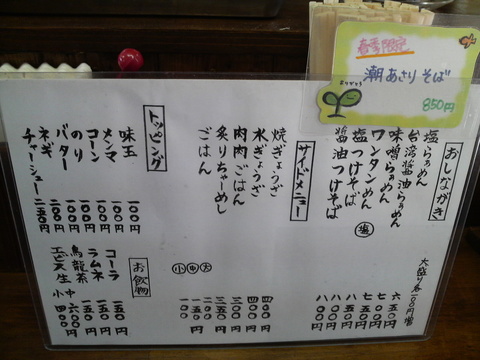 春季限定
潮あさりそば
850円
おしながき
大盛り各一〇〇円増
塩らぁめん 六五〇円
台湾醤油らぁめん
味噌らぁめん
ワンタンめん 塩
塩つけそば 八〇〇円
醤油つけそば 八〇〇円
サイドメニュー
焼ぎょうざ 四〇〇円
水ぎょうざ 四〇〇円
肉肉ごはん 三〇〇円
炙りちゃーめし
ごはん
大 二〇〇円
中 一五〇円
小 一〇〇円
トッピング
味玉 一〇〇円
メンマ 一〇〇円
コーン 一〇〇円
のり 一〇〇円
バター 一〇〇円
ネギ
チャーシュー 二五〇円
お飲物
コーラ 一五〇円
ラムネ 一五〇円
烏龍茶 一五〇円
ヱビス生 中 六〇〇円
小 四〇〇円